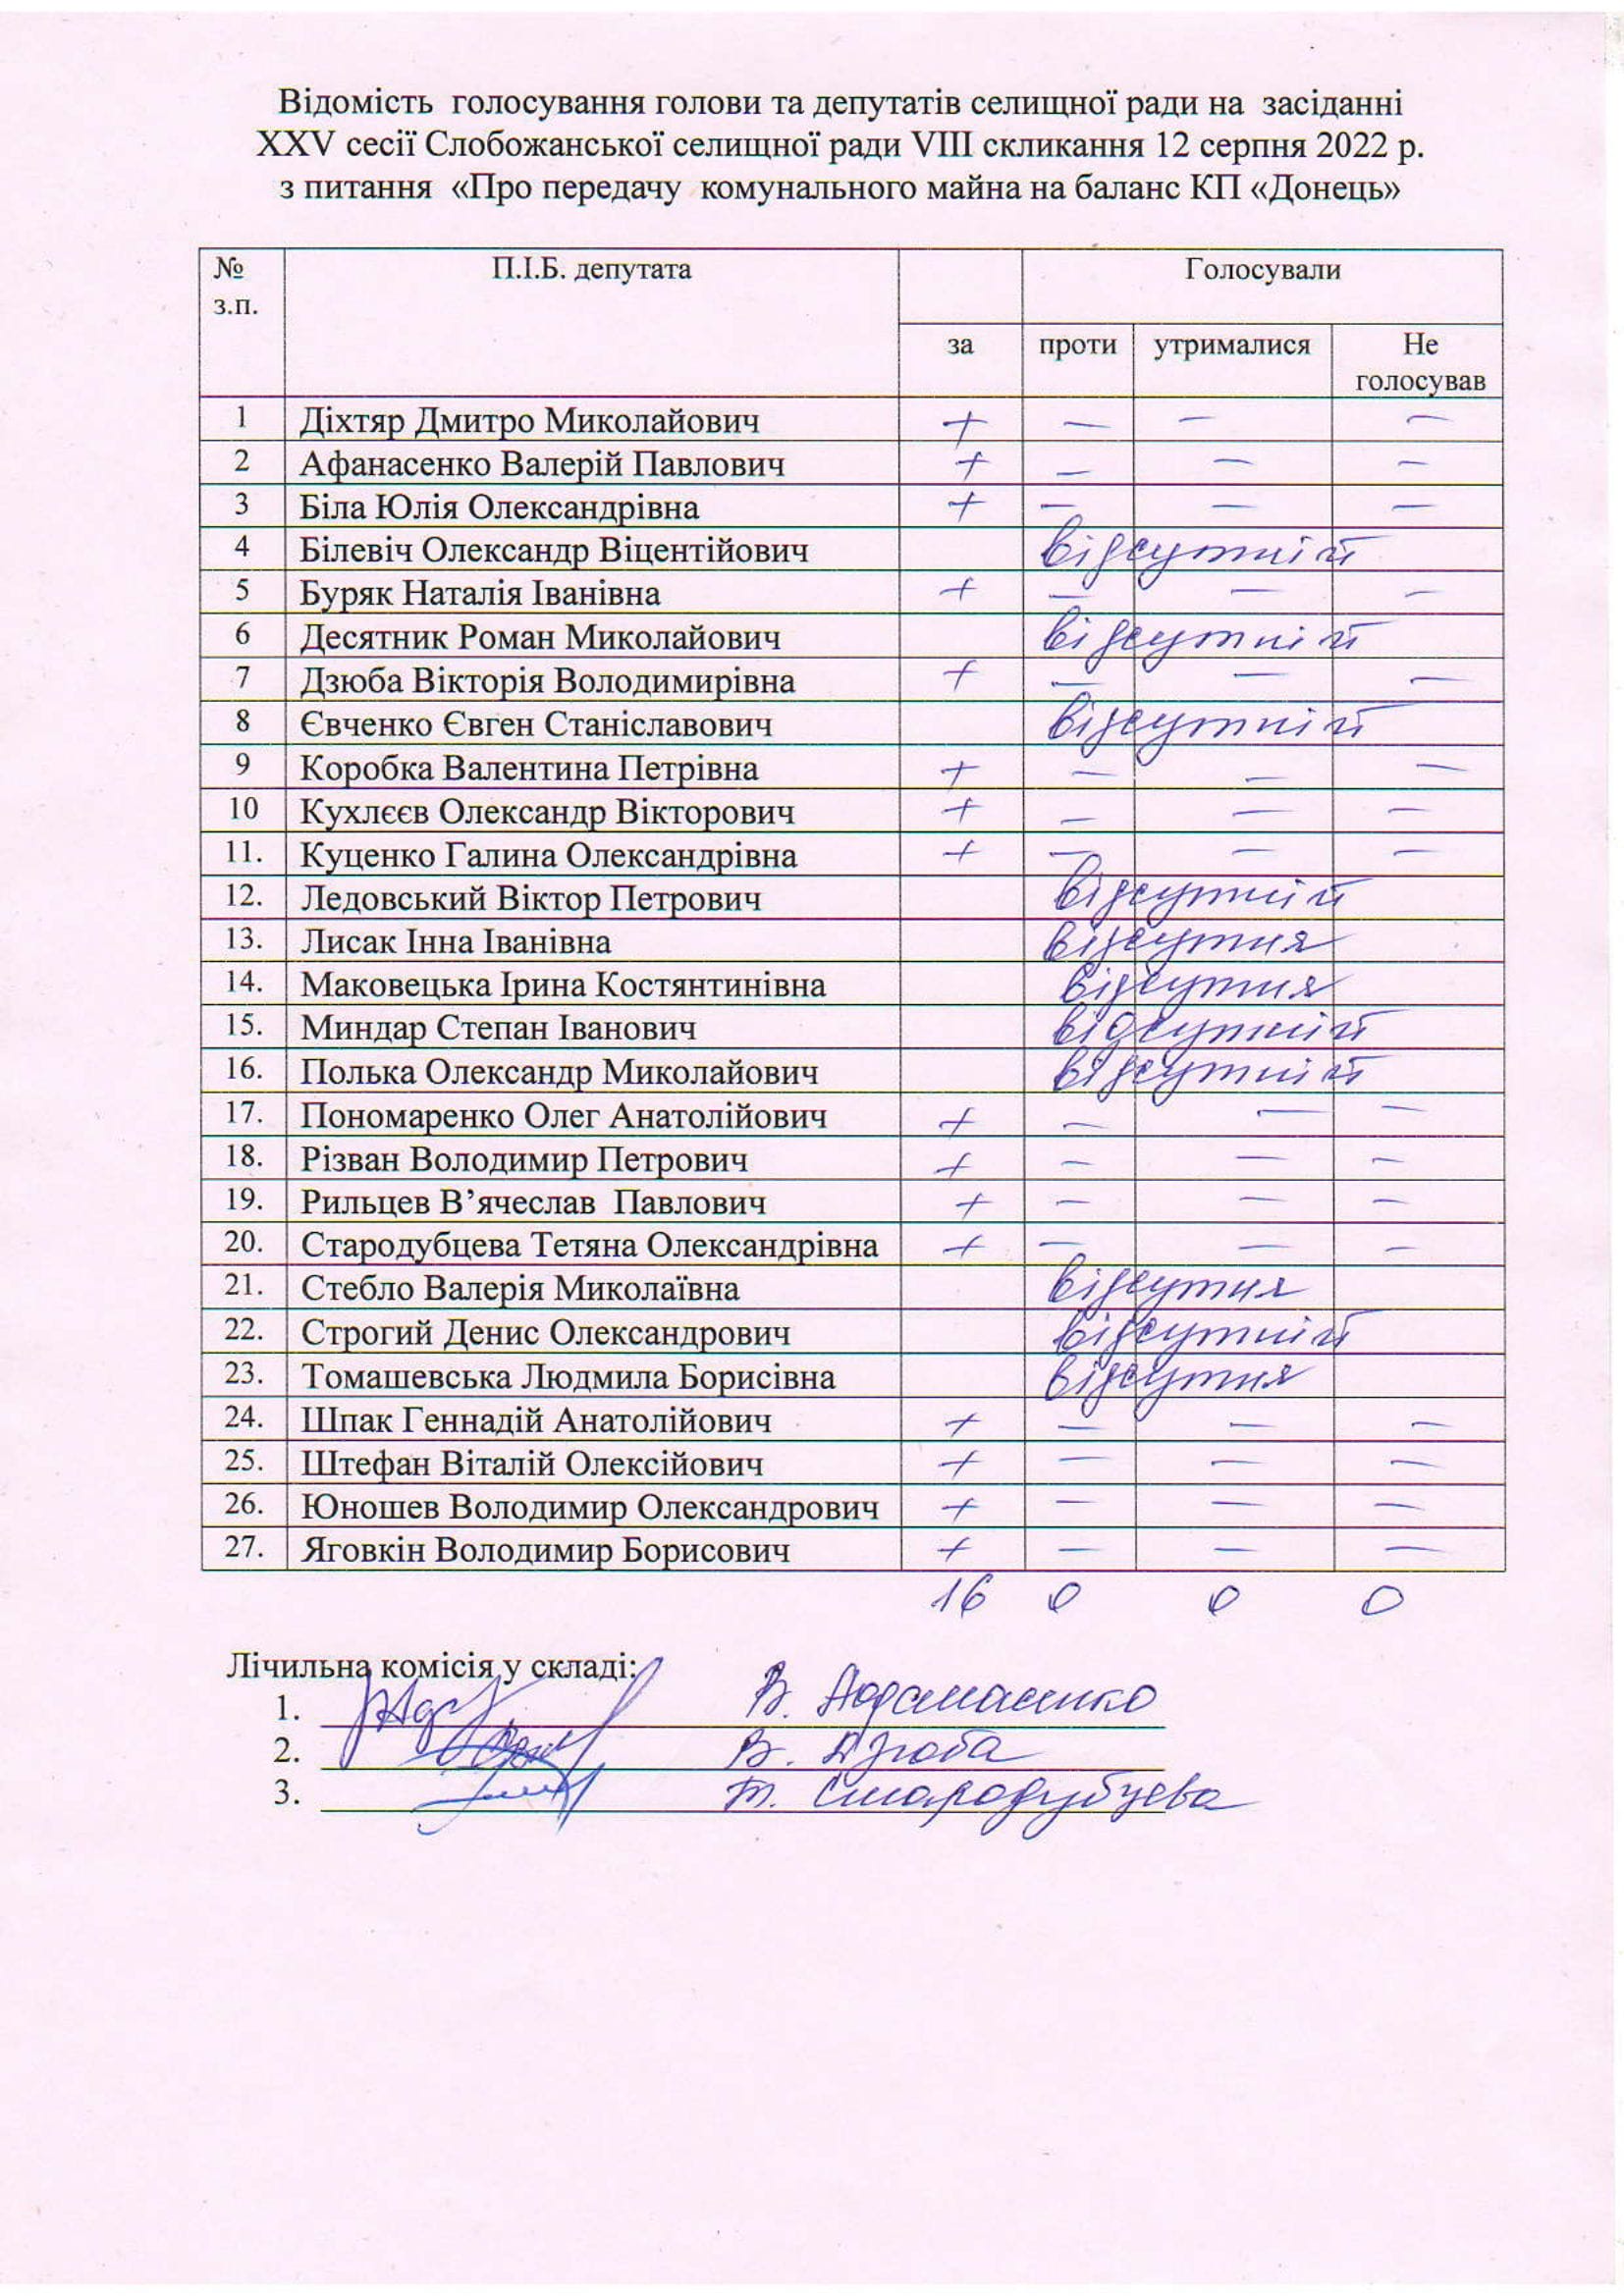 Відомість голосування голови та депутатів селищної ради на засіданні
XXV сесії Слобожанської селищної ради VIII скликання 12 серпня 2022 р.
з питання «Про передачу комунального майна на баланс КП «Донець»
№ з.п. П.І.Б. депутата Голосували
за проти утрималися Не голосував
1 Діхтяр Дмитро Миколайович + — — —
2 Афанасенко Валерій Павлович + — — —
3 Біла Юлія Олександрівна + — — —
4 Білевіч Олександр Віцентійович відсутній
5 Буряк Наталія Іванівна + — — —
6 Десятник Роман Миколайович відсутній
7 Дзюба Вікторія Володимирівна + — — —
8 Євченко Євген Станіславович відсутній
9 Коробка Валентина Петрівна + — — —
10 Кухлєєв Олександр Вікторович + — — —
11. Куценко Галина Олександрівна + — — —
12. Ледовський Віктор Петрович відсутній
13. Лисак Інна Іванівна відсутня
14. Маковецька Ірина Костянтинівна відсутня
15. Миндар Степан Іванович відсутній
16. Полька Олександр Миколайович відсутній
17. Пономаренко Олег Анатолійович + — — —
18. Різван Володимир Петрович + — — —
19. Рильцев В’ячеслав Павлович + — — —
20. Стародубцева Тетяна Олександрівна + — — —
21. Стебло Валерія Миколаївна відсутня
22. Строгий Денис Олександрович відсутній
23. Томашевська Людмила Борисівна відсутня
24. Шпак Геннадій Анатолійович + — — —
25. Штефан Віталій Олексійович + — — —
26. Юношев Володимир Олександрович + — — —
27. Яговкін Володимир Борисович + — — —
16 0 0 0
Лічильна комісія у складі:
1. В.
2. В. Дзюба
3. Т. Стародубцева